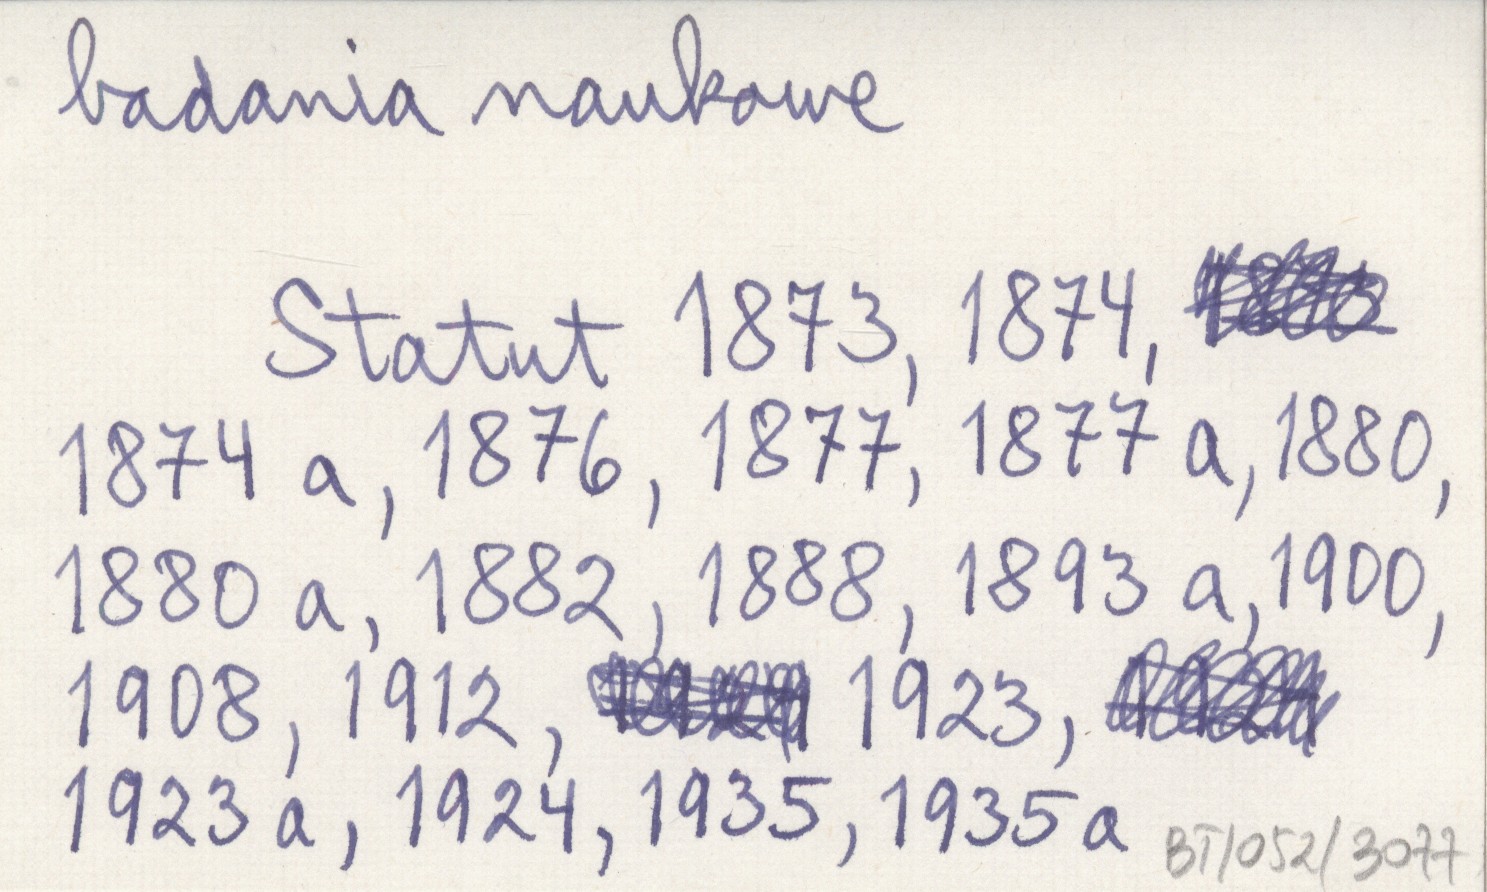 badania naukowe
Statut 1873, 1874,
1874 a, 1876, 1877, 1877 a, 1880,
1880 a, 1882, 1888, 1893 a, 1900,
1908, 1912, 1923,
1923 a, 1924, 1935, 1935 a
BT/052/3077